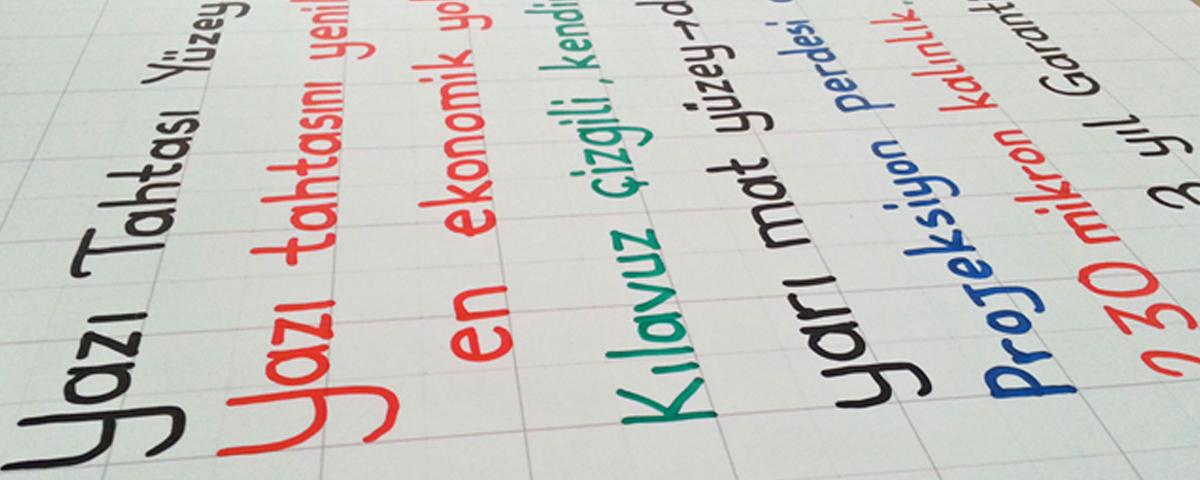 Yazı Tahtası Yüzey
Yazı tahtasını yenil
en ekonomik yol
Kılavuz çizgili, kendi
Yarı mat yüzey→d
ProJeksiyon perdesi
230 mikron kalınlık,
2 yıl Garanti